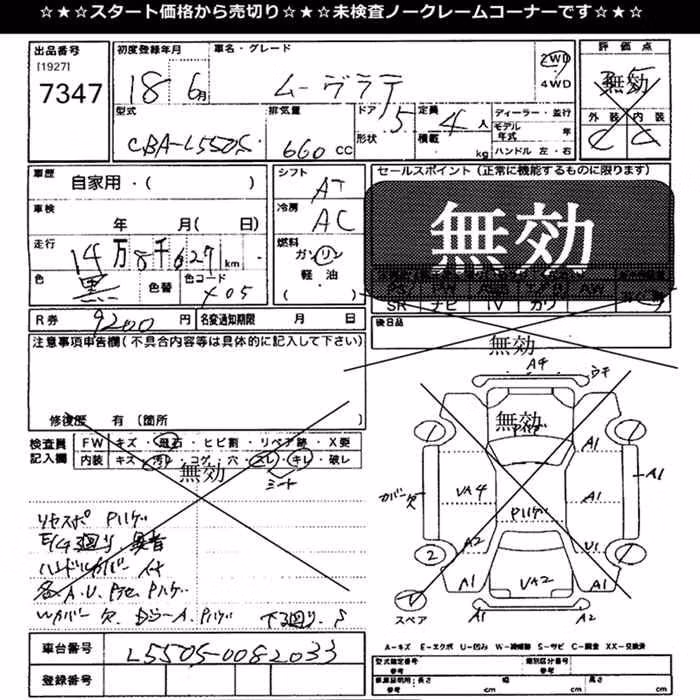 ☆★☆スタート価格から売切り☆★☆未検査ノークレームコーナーです☆★☆
出品番号
[1927]
7347
初度登録年月
18 6月
車名・グレード
ムーヴラテ
2WD
4WD
評価点
無効
外装 内装
C C
型式
CBA-L550S
排気量
660 cc
ドア 5
形状
定員 4 人
積載 kg
ディーラー・並行
モデル年式 年
ハンドル 左・右
車歴
自家用・( )
車検
年 月( 日)
走行
14万8千627km
色
黒
色替
色コード
X05
シフト
AT
冷房
AC
燃料
ガソリン
軽油
( )
セールスポイント(正常に機能するものに限ります)
無効
SR ナビ TV カワ
後日品
無効
R券 9200円
名変通知期限 月 日
注意事項申告欄(不具合内容等は具体的に記入して下さい)
修復歴 有(箇所 )
検査員記入欄
FW キズ・飛石・ヒビ割・リペア跡・X要
内装 キズ・汚れ・コゲ・穴・スレ・キレ・破レ
無効
シート
リセスポ Pハゲ
E/4 廻り 異音
ハンドルカバー 付
各A.U.Pテ.Pハゲ
Wカバー 欠 ドラーA.Pハゲ 下廻り.S
A4
無効
A1
A1
A1
A1
カバー欠
VA4
Pハゲ
A2
U1
2
A1
VA2
A1
スペア
A1
A2
A-キズ E-エクボ U-凹み W-補修跡 S-サビ C-腐食 XX-交換済
車台番号
L550S-0082033
登録番号
型式指定番号
参考
類別区分番号
参考
車庫証明用:長さ
参考 cm
幅
cm
高さ
cm